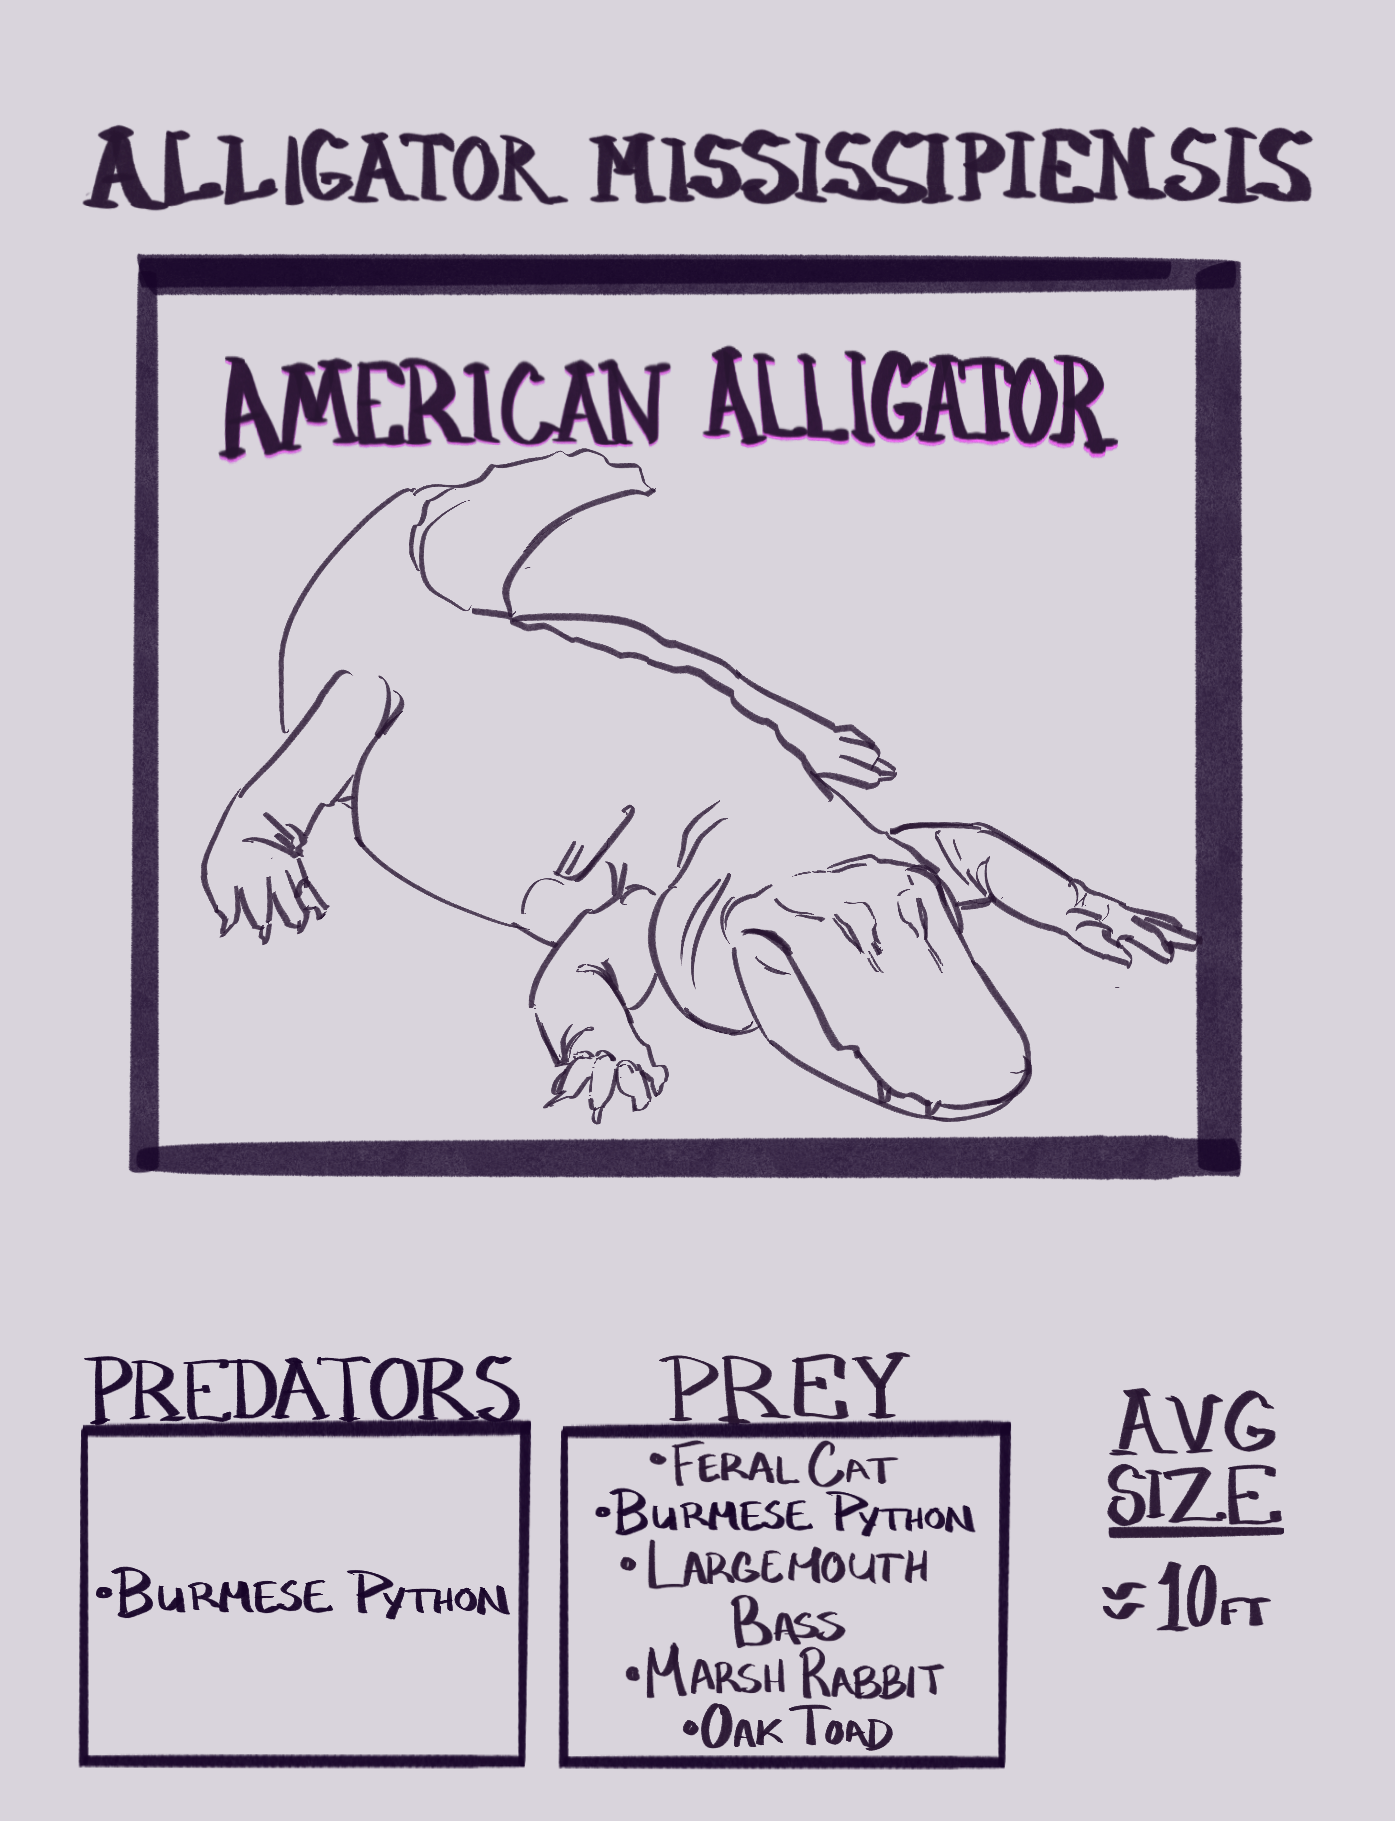 ALLIGATOR MISSISSIPIENSIS
AMERICAN ALLIGATOR
PREDATORS
•BURMESE PYTHON
PREY
•FERAL CAT
•BURMESE PYTHON
•LARGEMOUTH
BASS
•MARSH RABBIT
•OAK TOAD
AVG
SIZE
≈10FT